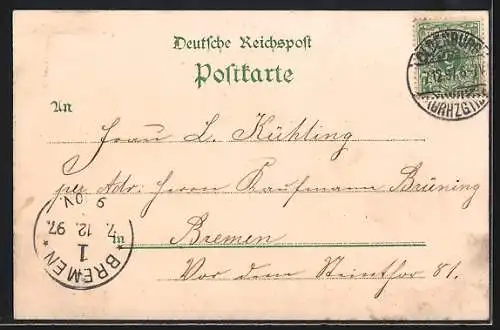 Deutsche Reichspost
Postkarte
An
Frau L. Kühling
per Adr. Herrn Kaufmann Brüning
in Bremen
Vor dem Steinthor 81.
OLDENBURG
7.12.97. 6-7N.
(GRHZGTH.)
BREMEN
1
7. 12. 97.
9